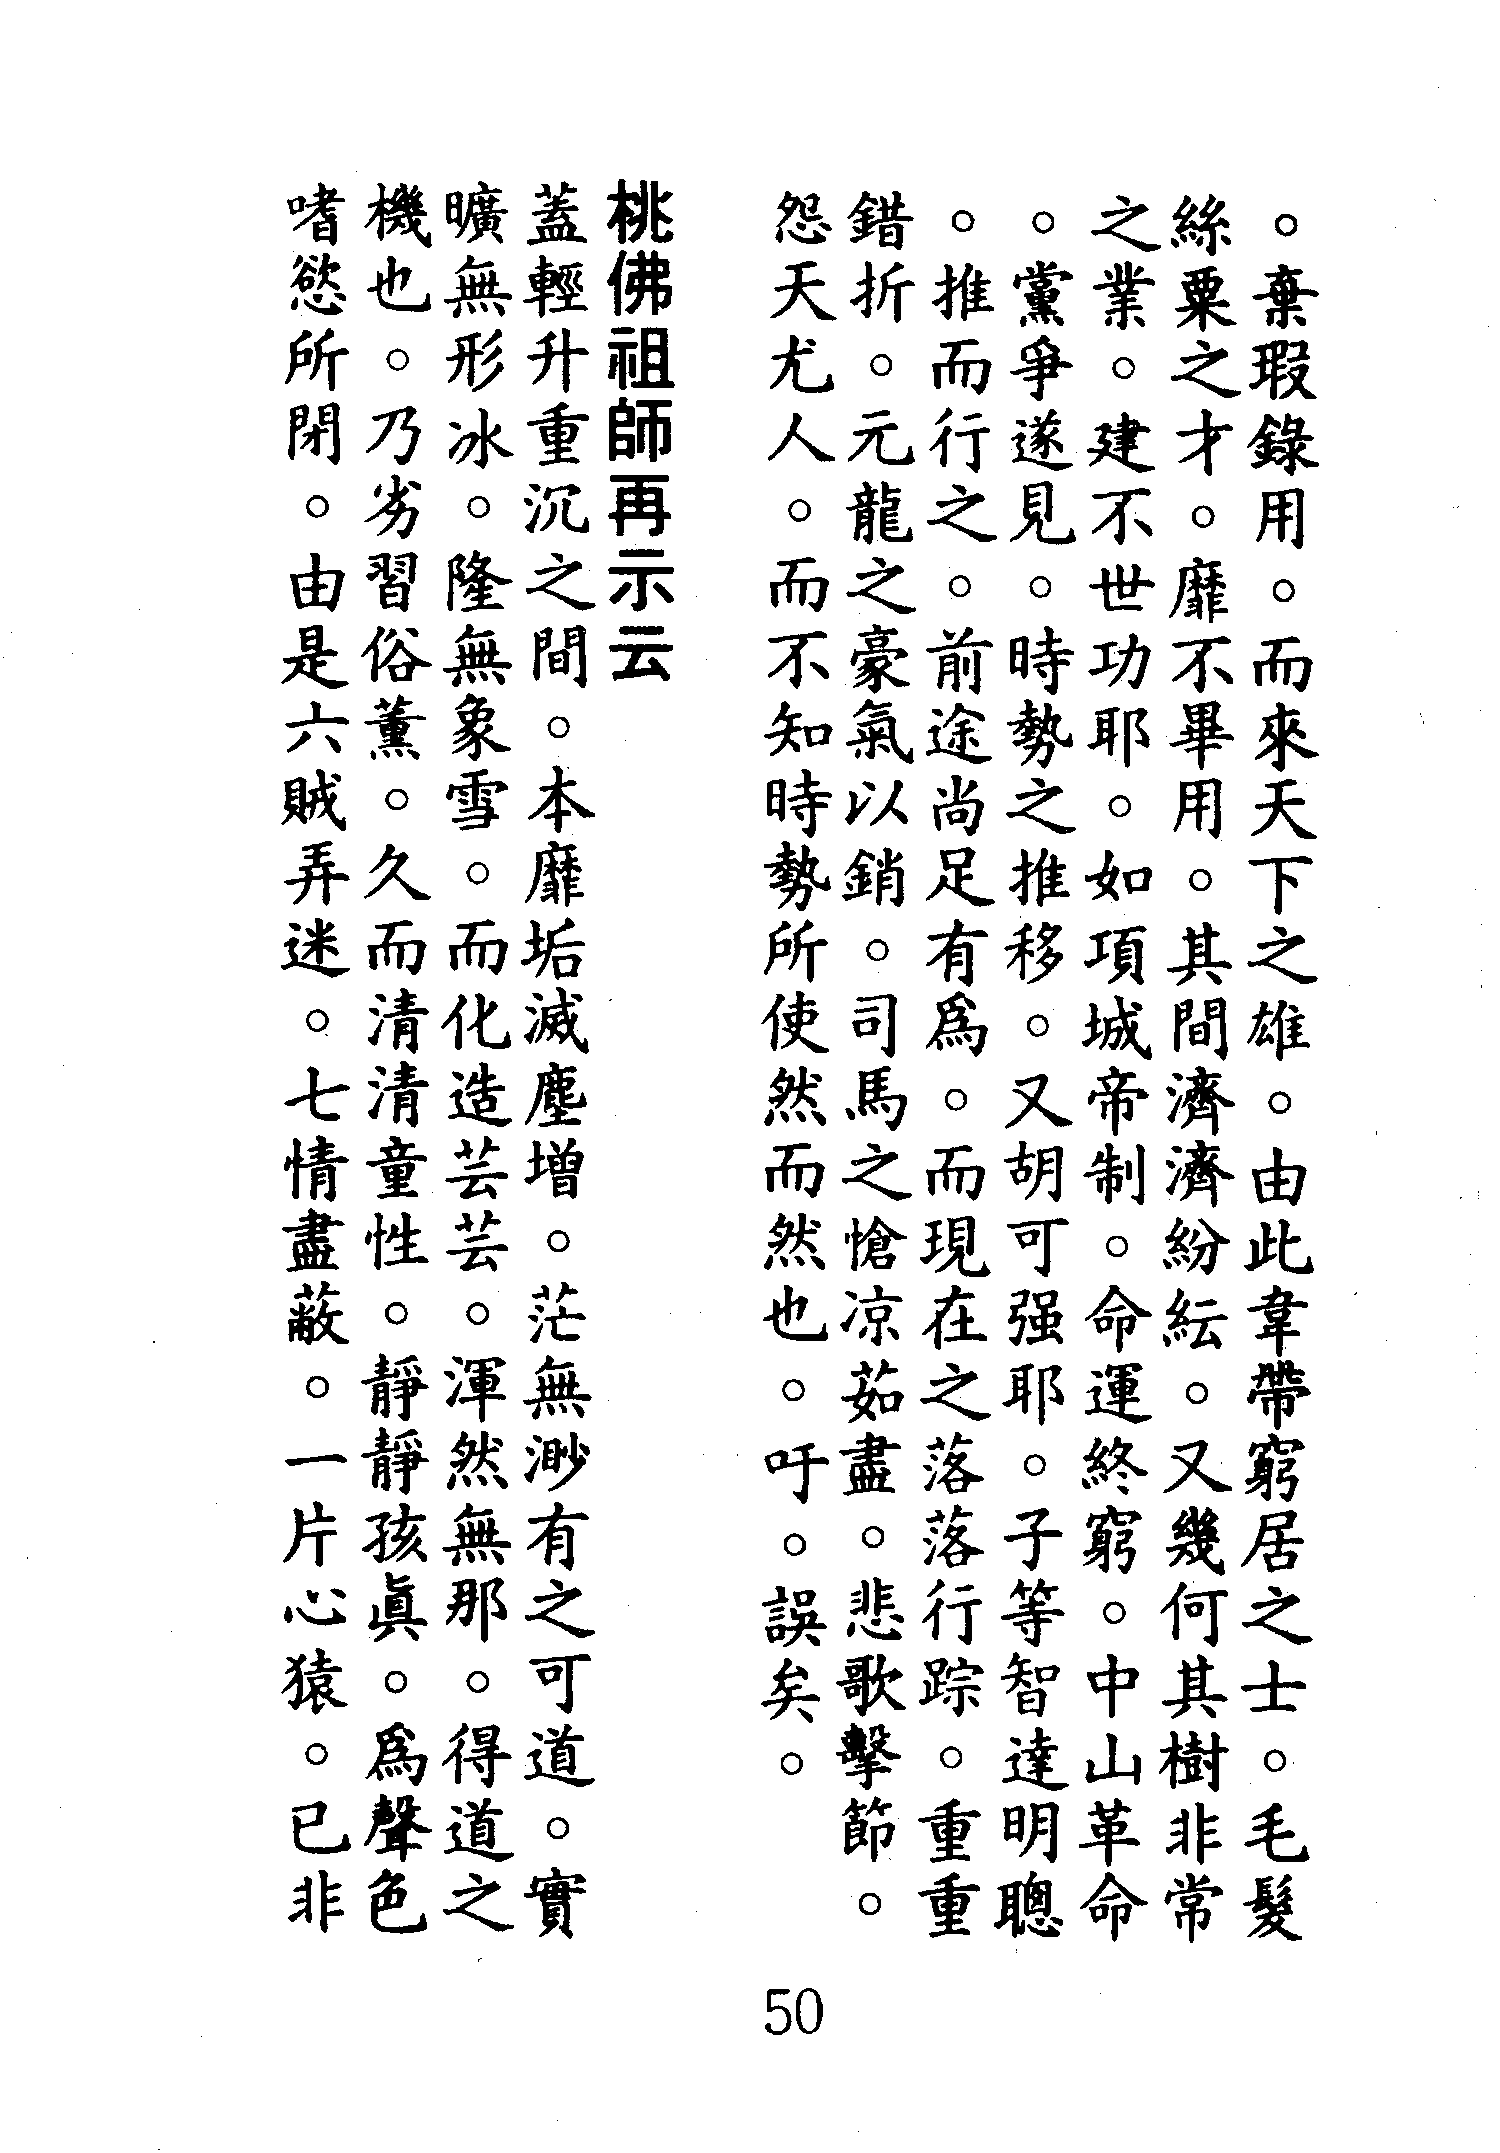 。棄瑕錄用。而來天下之雄。由此韋帶窮居之士。毛髮
絲粟之才。靡不畢用。其間濟濟紛紜。又幾何其樹非常
之業。建不世功耶。如項城帝制。命運終窮。中山革命
。黨爭遂見。時勢之推移。又胡可强耶。子等智達明聰
。推而行之。前途尚足有爲。而現在之落落行踪。重重
錯折。元龍之豪氣以銷。司馬之愴凉茹盡。悲歌擊節。
怨天尤人。而不知時勢所使然而然也。吁。誤矣。
桃佛祖師再示云
蓋輕升重沉之間。本靡垢滅塵增。茫無渺有之可道。實
曠無形冰。隆無象雪。而化造芸芸。渾然無那。得道之
機也。乃劣習俗薰。久而清清童性。靜靜孩眞。爲聲色
嗜慾所閉。由是六賊弄迷。七情盡蔽。一片心猿。已非
50